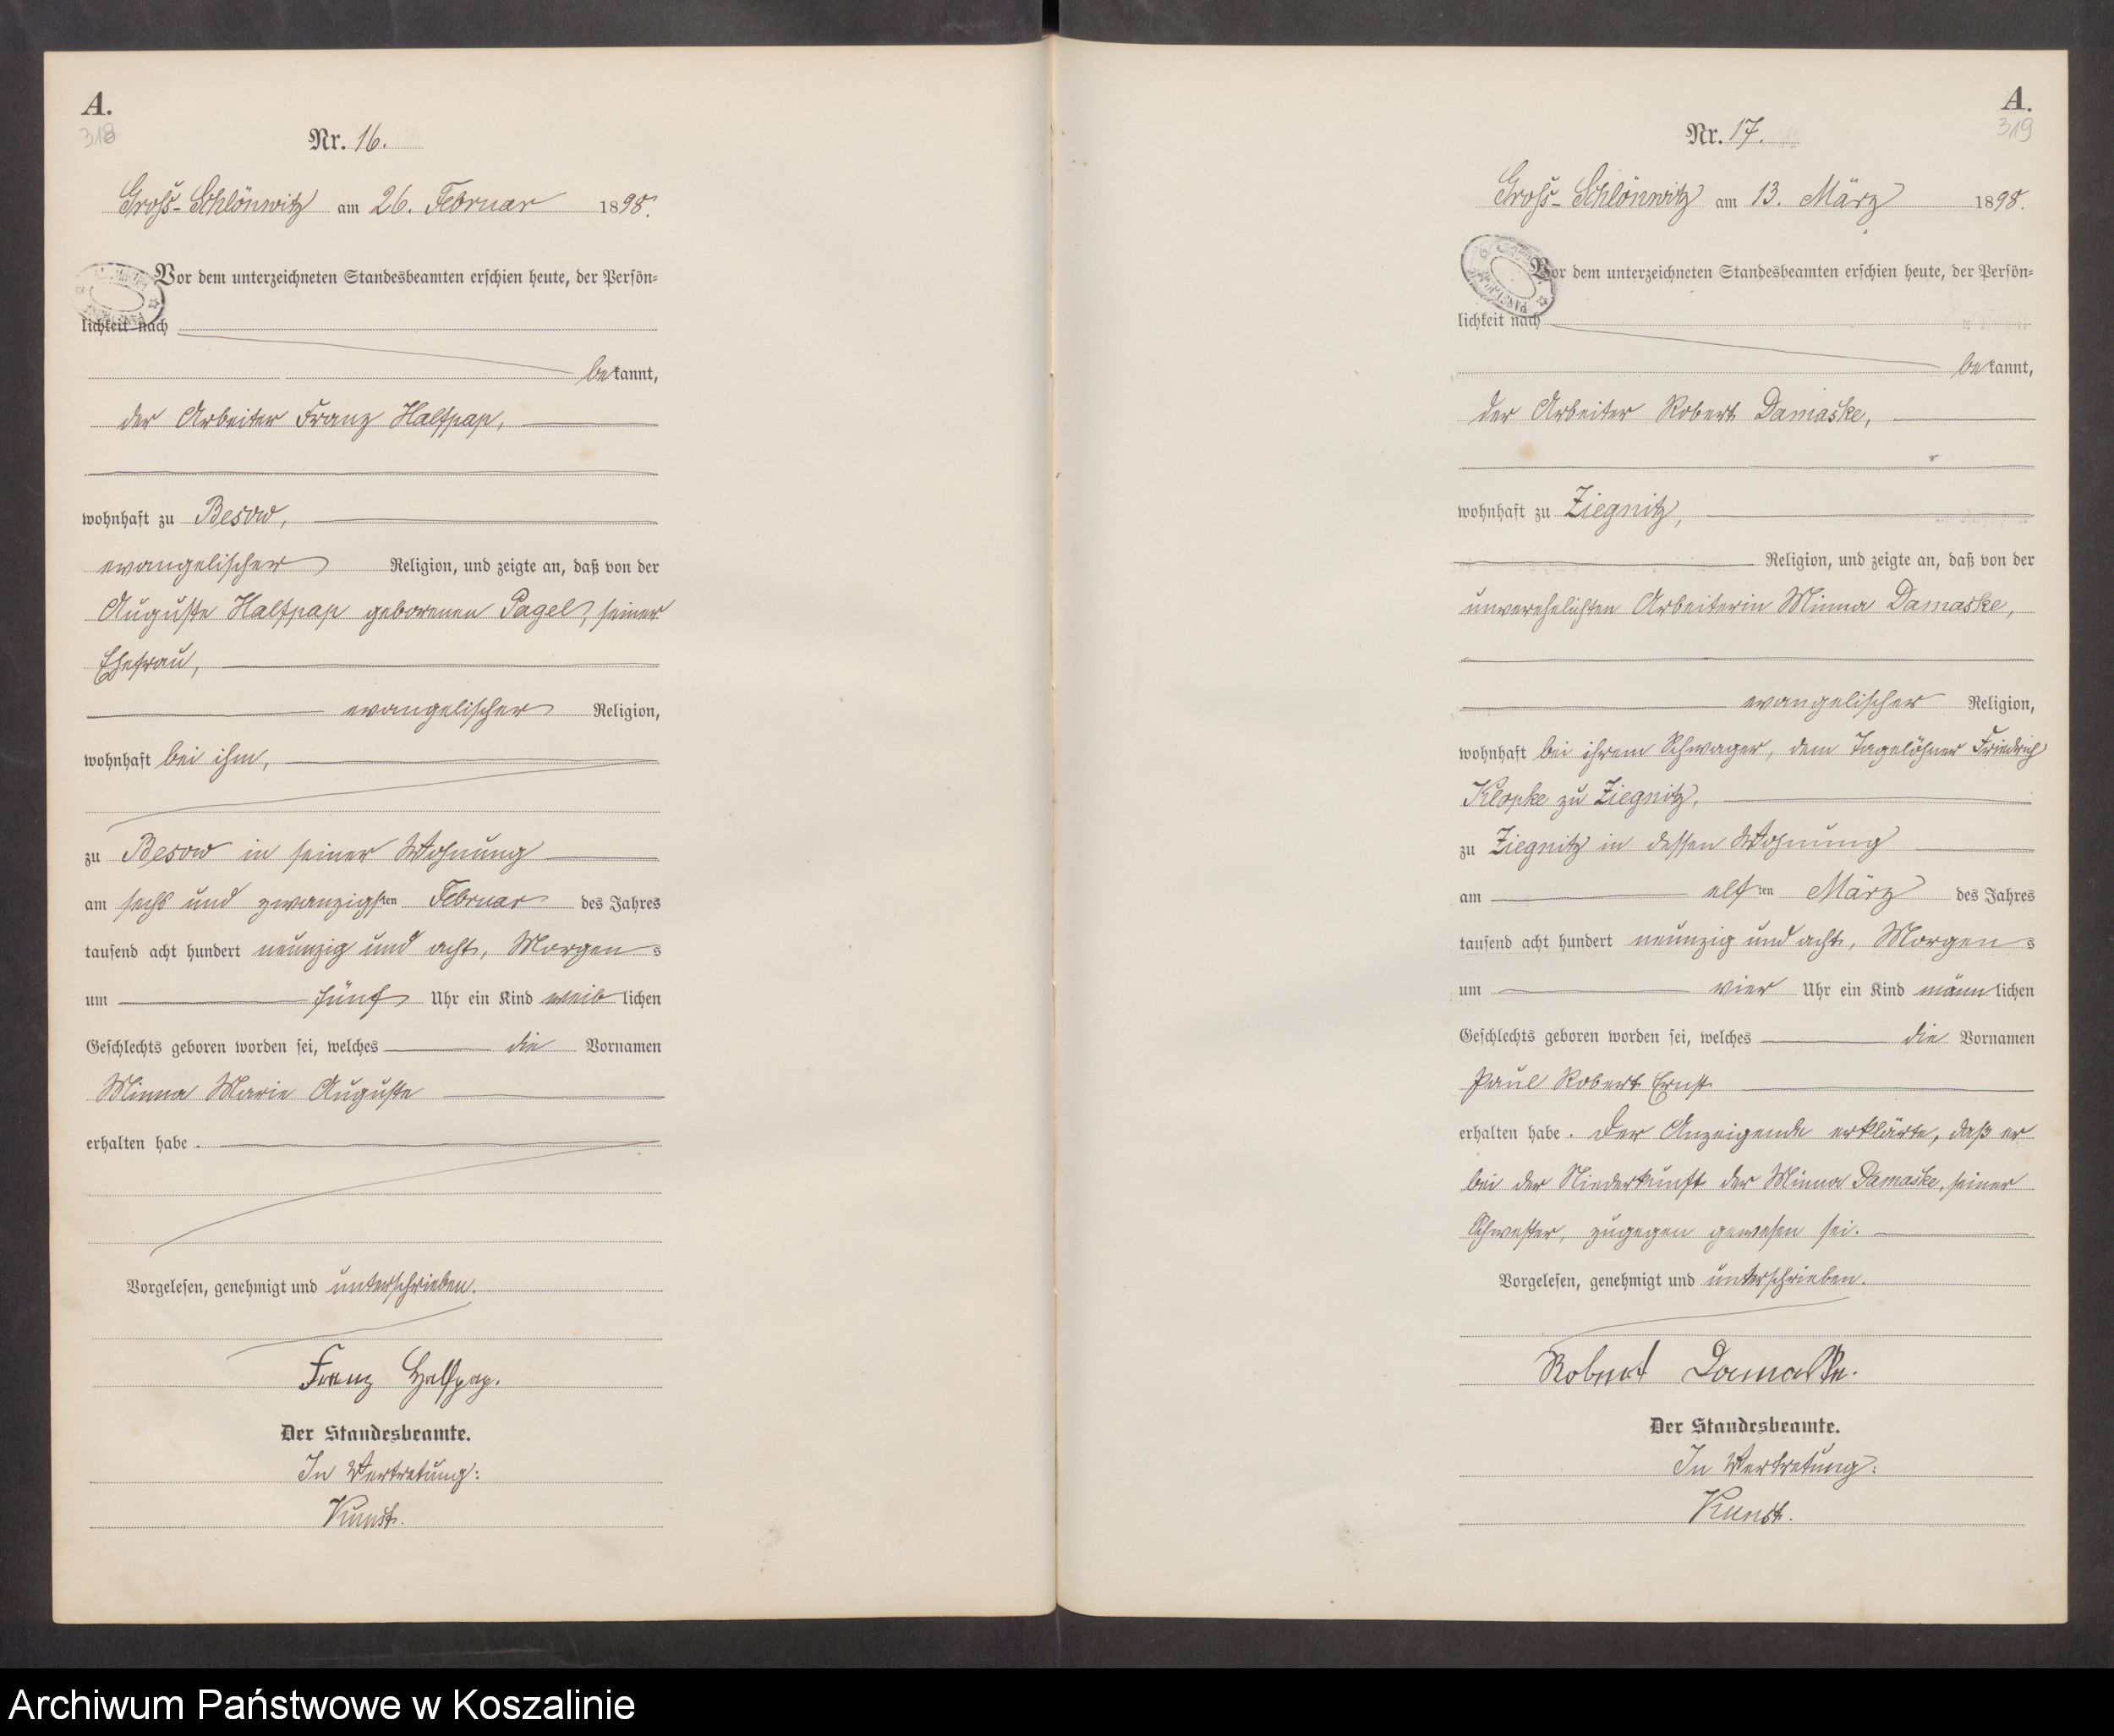 A.
318
Nr. 16.
Groß-Schlönwitz am 26. Februar 1898.
Vor dem unterzeichneten Standesbeamten erschien heute, der Persön-
lichkeit nach
bekannt,
der Arbeiter Franz Halfpap,
wohnhaft zu Besow,
evangelischer Religion, und zeigte an, daß von der
Auguste Halfpap geborenen Pagel, seiner
Ehefrau,
evangelischer Religion,
wohnhaft bei ihm,
zu Besow in seiner Wohnung
am sechs und zwanzigsten Februar des Jahres
tausend acht hundert neunzig und acht, Morgens
um fünf Uhr ein Kind weiblichen
Geschlechts geboren worden sei, welches die Vornamen
Minna Marie Auguste
erhalten habe.
Vorgelesen, genehmigt und unterschrieben.
Franz Halfpap.
Der Standesbeamte.
In Vertretung:
Kunst.
A.
319
Nr. 17.
Groß-Schlönwitz am 13. März 1898.
Vor dem unterzeichneten Standesbeamten erschien heute, der Persön-
lichkeit nach
bekannt,
der Arbeiter Robert Damaske,
wohnhaft zu Ziegnitz,
Religion, und zeigte an, daß von der
unverehelichten Arbeiterin Minna Damaske,
evangelischer Religion,
wohnhaft bei ihrem Schwager, dem Tagelöhner Friedrich
Klopke zu Ziegnitz,
zu Ziegnitz in dessen Wohnung
am elften März des Jahres
tausend acht hundert neunzig und acht, Morgens
um vier Uhr ein Kind männlichen
Geschlechts geboren worden sei, welches die Vornamen
Paul Robert Ernst
erhalten habe. Der Anzeigende erklärte, daß er
bei der Niederkunft der Minna Damaske, seiner
Schwester, zugegen gewesen sei.
Vorgelesen, genehmigt und unterschrieben.
Robert Damaske.
Der Standesbeamte.
In Vertretung:
Kunst.
Archiwum Państwowe w Koszalinie